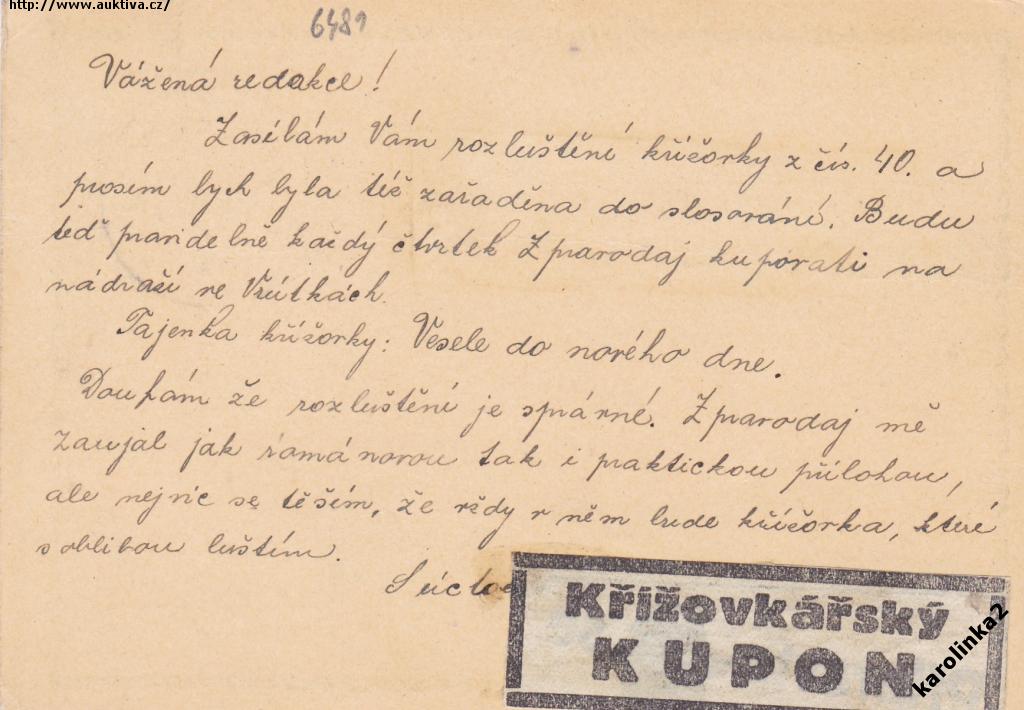 http://www.auktiva.cz/
6481
Vážená redakce!
Zasílám Vám rozluštění křížovky z čís. 40. a
prosím bych byla též zařaděna do slosování. Budu
teď pravidelně každý čtvrtek Zpravodaj kupovati na
nádraží ve Vrútkách.
Tajenka křížovky: Vesele do nového dne.
Doufám že rozluštění je správné. Zpravodaj mě
zaujal jak románovou tak i praktickou přílohou,
ale nejvíc se těším, že vždy v něm bude křížovka, které
s oblibou luštím.
S úctou
Křížovkářský
KUPON
karolinka2